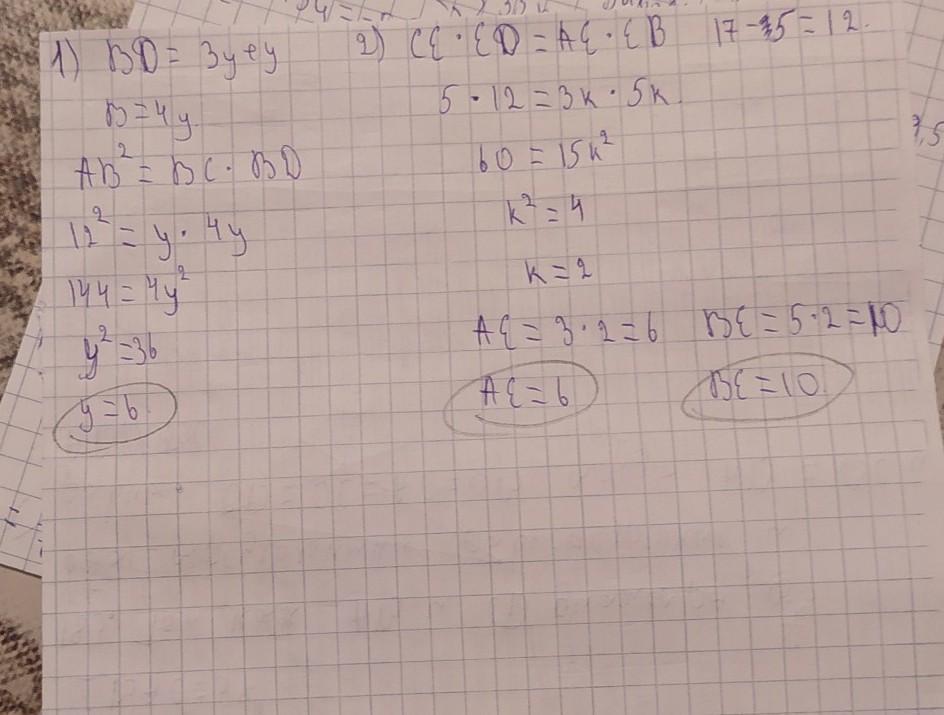 1) BD = 3y+y
B = 4y
AB² = BC · BD
12² = y · 4y
144 = 4y²
y² = 36
y = 6
2) CE · ED = AE · EB 17 - 5 = 12.
5 · 12 = 3k · 5k
60 = 15k²
k² = 4
k = 2
AE = 3 · 2 = 6 BE = 5 · 2 = 10
AE = 6 BE = 10